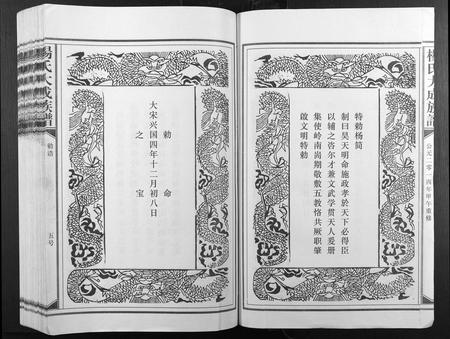 楊氏大成族譜
公元二零一四年甲午重修
特勅杨筒
制曰昊天明命施政孝於天下必得臣
以辅之咨尔才兼文武学贯天人爰册
集使岭南尚期敬敷五教恪共厥职肇
啟文明特勅
勅命
大宋兴国四年十二月初八日
之宝
楊氏大成族譜
勅诰
五号